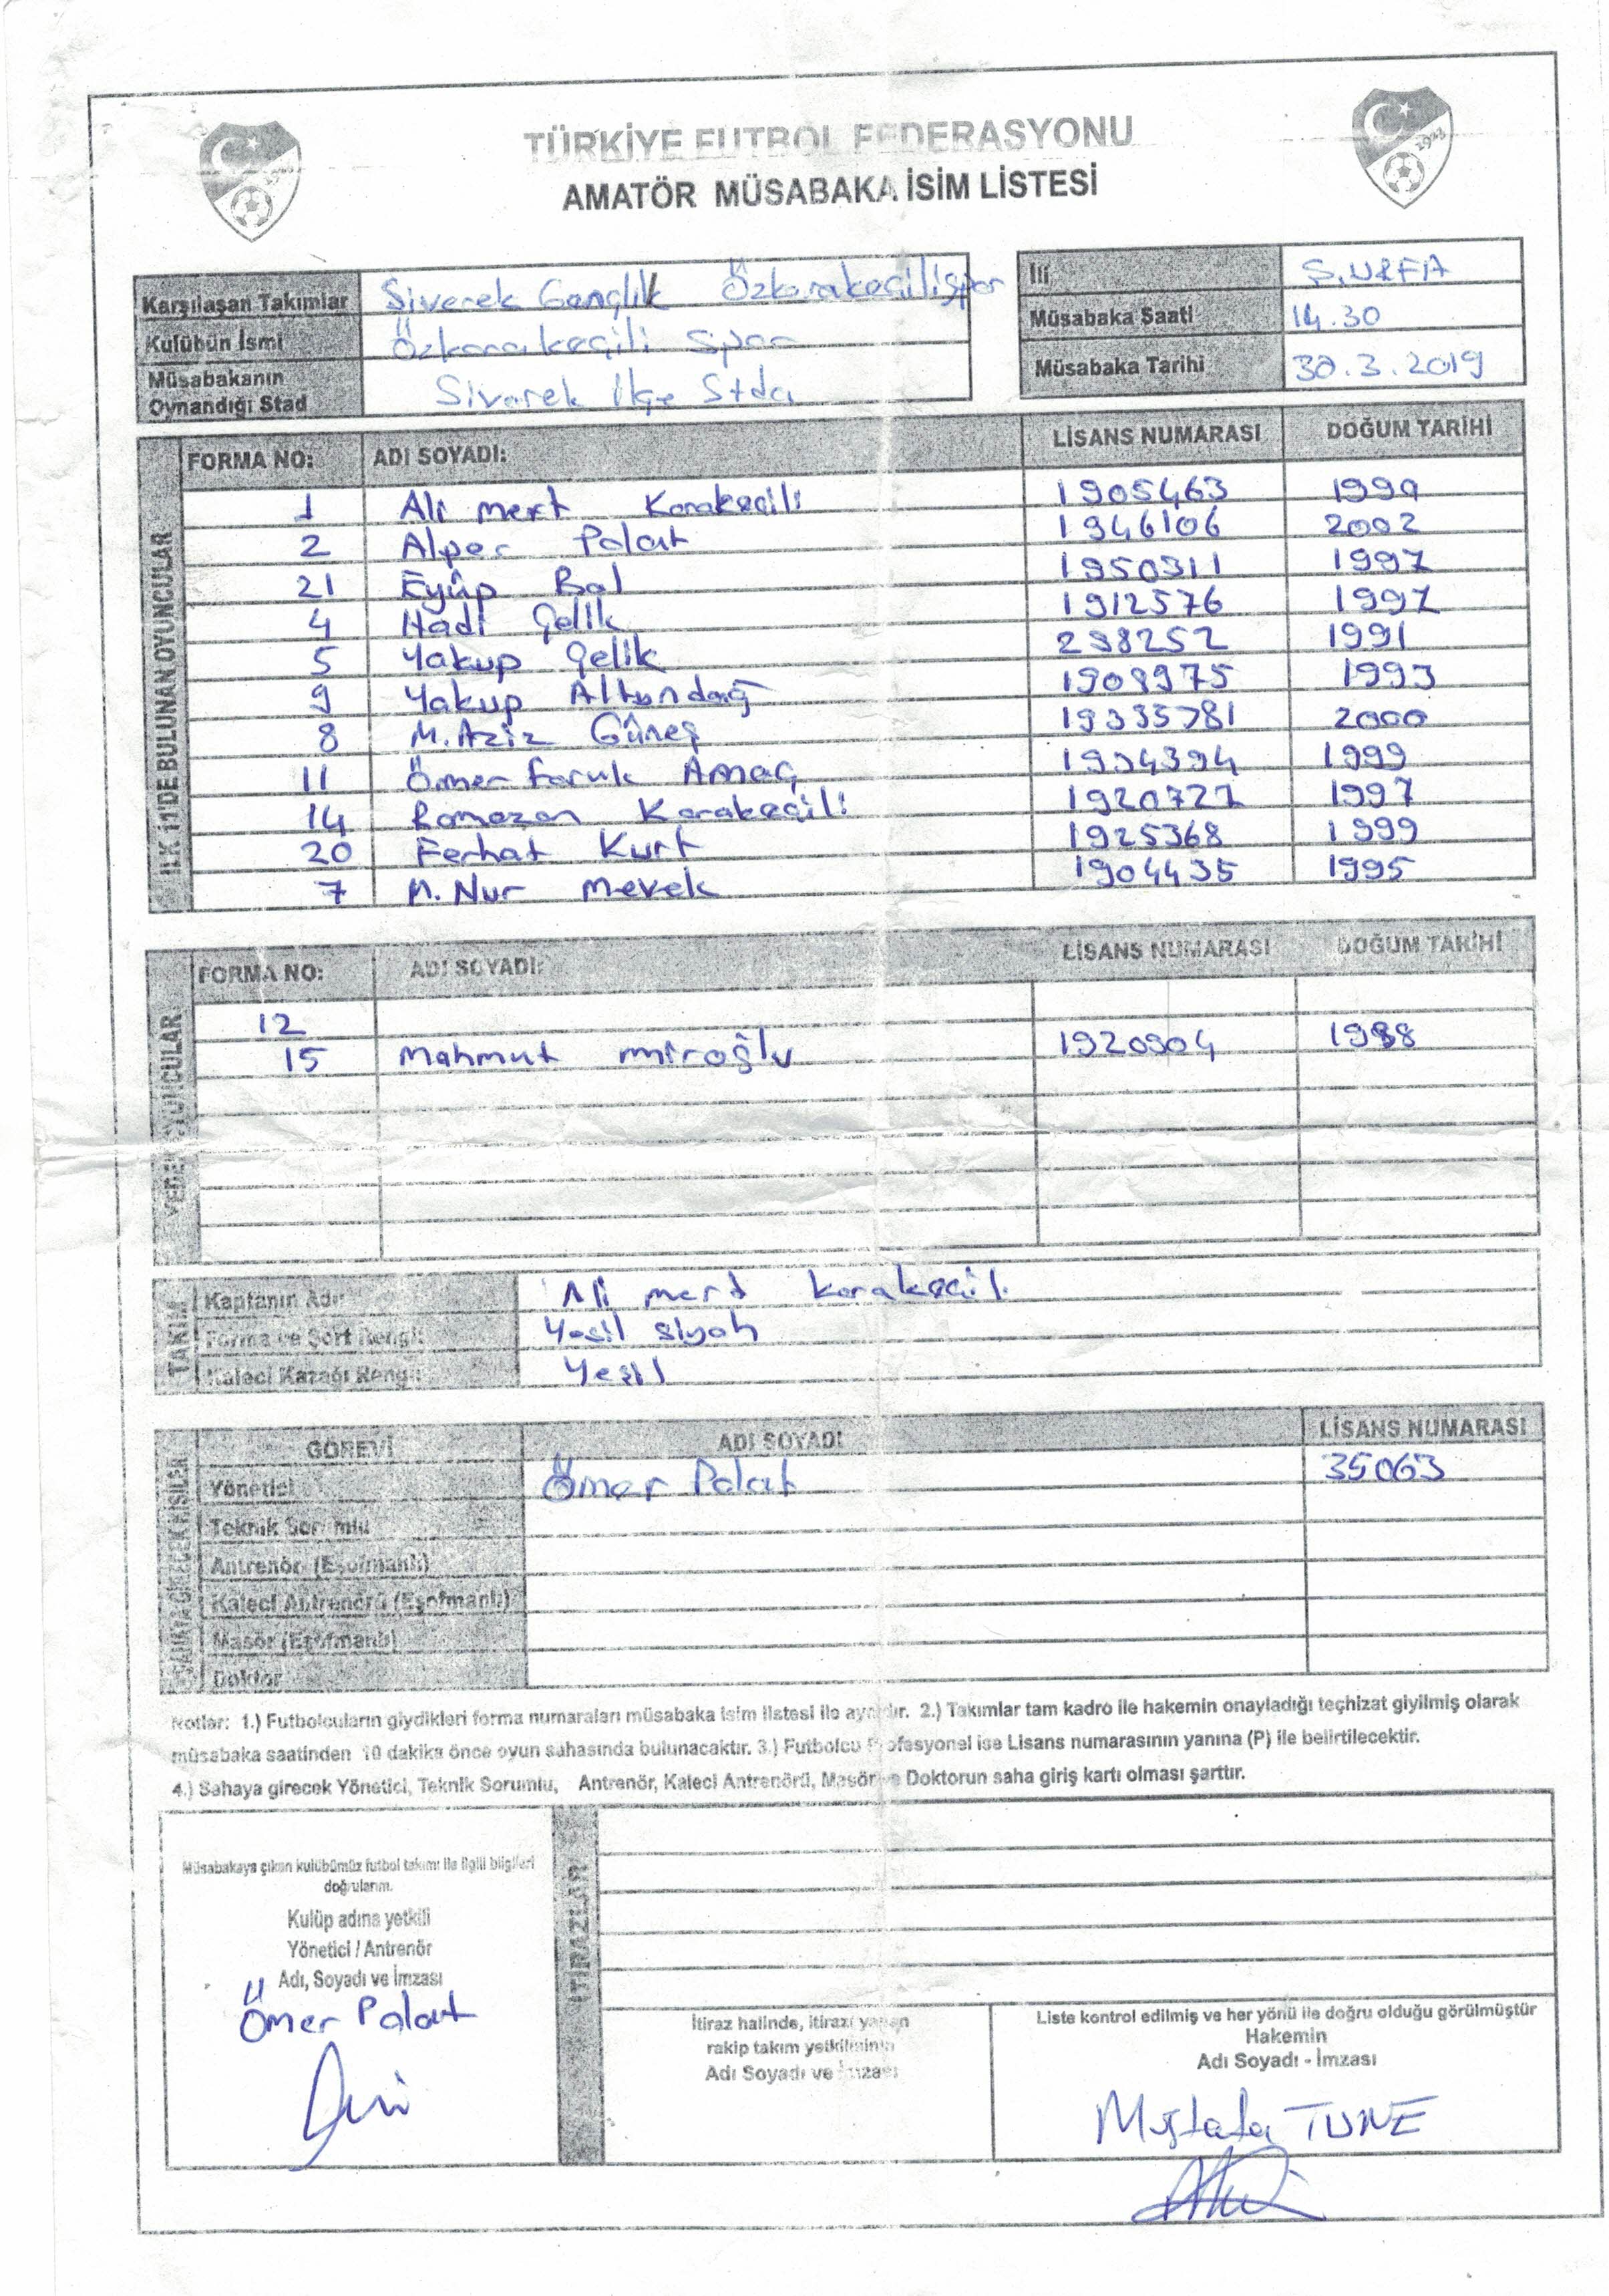 TÜRKİYE FUTBOL FEDERASYONU
AMATÖR MÜSABAKA İSİM LİSTESİ
Karşılaşan Takımlar Siverek Gençlik Özkarakeçilispor
Kulübün İsmi Özkarakeçili Spor
Müsabakanın Oynandığı Stad Siverek İlçe Stdı
İli Ş.URFA
Müsabaka Saati 14.30
Müsabaka Tarihi 30.3.2019
İLK 11'DE BULUNAN OYUNCULAR
FORMA NO: ADI SOYADI: LİSANS NUMARASI DOĞUM TARİHİ
1 Ali mert Karakeçili 1905463 1999
2 Alper Polat 1946106 2002
21 Eyüp Bal 1950311 1997
4 Hadi Çelik 1912576 1997
5 Yakup Çelik 298252 1991
9 Yakup Altundağ 1909975 1993
8 M.Aziz Güneş 19335781 2000
11 Ömer faruk Amaç 1934394 1999
14 Ramazan Karakeçili 1920727 1997
20 Ferhat Kurt 1925368 1999
7 M.Nur mevek 1904435 1995
FORMA NO: ADI SOYADI: LİSANS NUMARASI DOĞUM TARİHİ
12
15 Mahmut miroğlu 1920904 1998
TAKIM
Kaptanın Adı: Ali mert karakeçili
Forma ve Şort Rengi: Yeşil siyah
Kaleci Kazağı Rengi: Yeşil
GÖREVİ ADI SOYADI LİSANS NUMARASI
Yönetici Ömer Polat 35063
Teknik Sorumlu
Antrenör (Eşofmanlı)
Kaleci Antrenörü (Eşofmanlı)
Masör (Eşofmanlı)
Doktor
Notlar: 1.) Futbolcuların giydikleri forma numaraları müsabaka isim listesi ile aynıdır. 2.) Takımlar tam kadro ile hakemin onayladığı teçhizat giyilmiş olarak
müsabaka saatinden 10 dakika önce oyun sahasında bulunacaktır. 3.) Futbolcu Profesyonel ise Lisans numarasının yanına (P) ile belirtilecektir.
4.) Sahaya girecek Yönetici, Teknik Sorumlu, Antrenör, Kaleci Antrenörü, Masör ve Doktorun saha giriş kartı olması şarttır.
Müsabakaya çıkan kulübümüz futbol takımı ile ilgili bilgileri
doğrularım.
Kulüp adına yetkili
Yönetici / Antrenör
Adı, Soyadı ve İmzası
Ömer Polat
İTİRAZLAR
İtiraz halinde, itirazı yapan
rakip takım yetkilisinin
Adı Soyadı ve İmzası
Liste kontrol edilmiş ve her yönü ile doğru olduğu görülmüştür
Hakemin
Adı Soyadı - İmzası
Mustafa TUNE